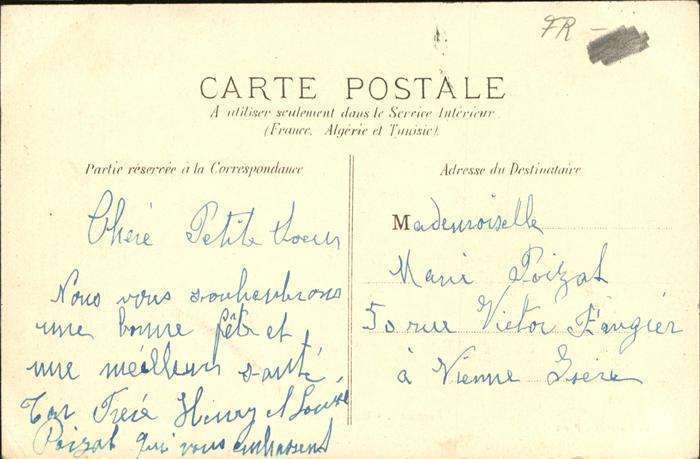 FR -
CARTE POSTALE
A utiliser seulement dans le Service Intérieur
(France, Algérie et Tunisie).
Partie réservée à la Correspondance
Adresse du Destinataire
Cheré Petite Soeur
Nous vous souhaitrons
une bonne fête et
une meilleur santé
Ton Freré Henry et Louise
Poizat qui vous embrassent
Mademoiselle
Marie Poizat
50 rue Victor Faugier
à Vienne Isère